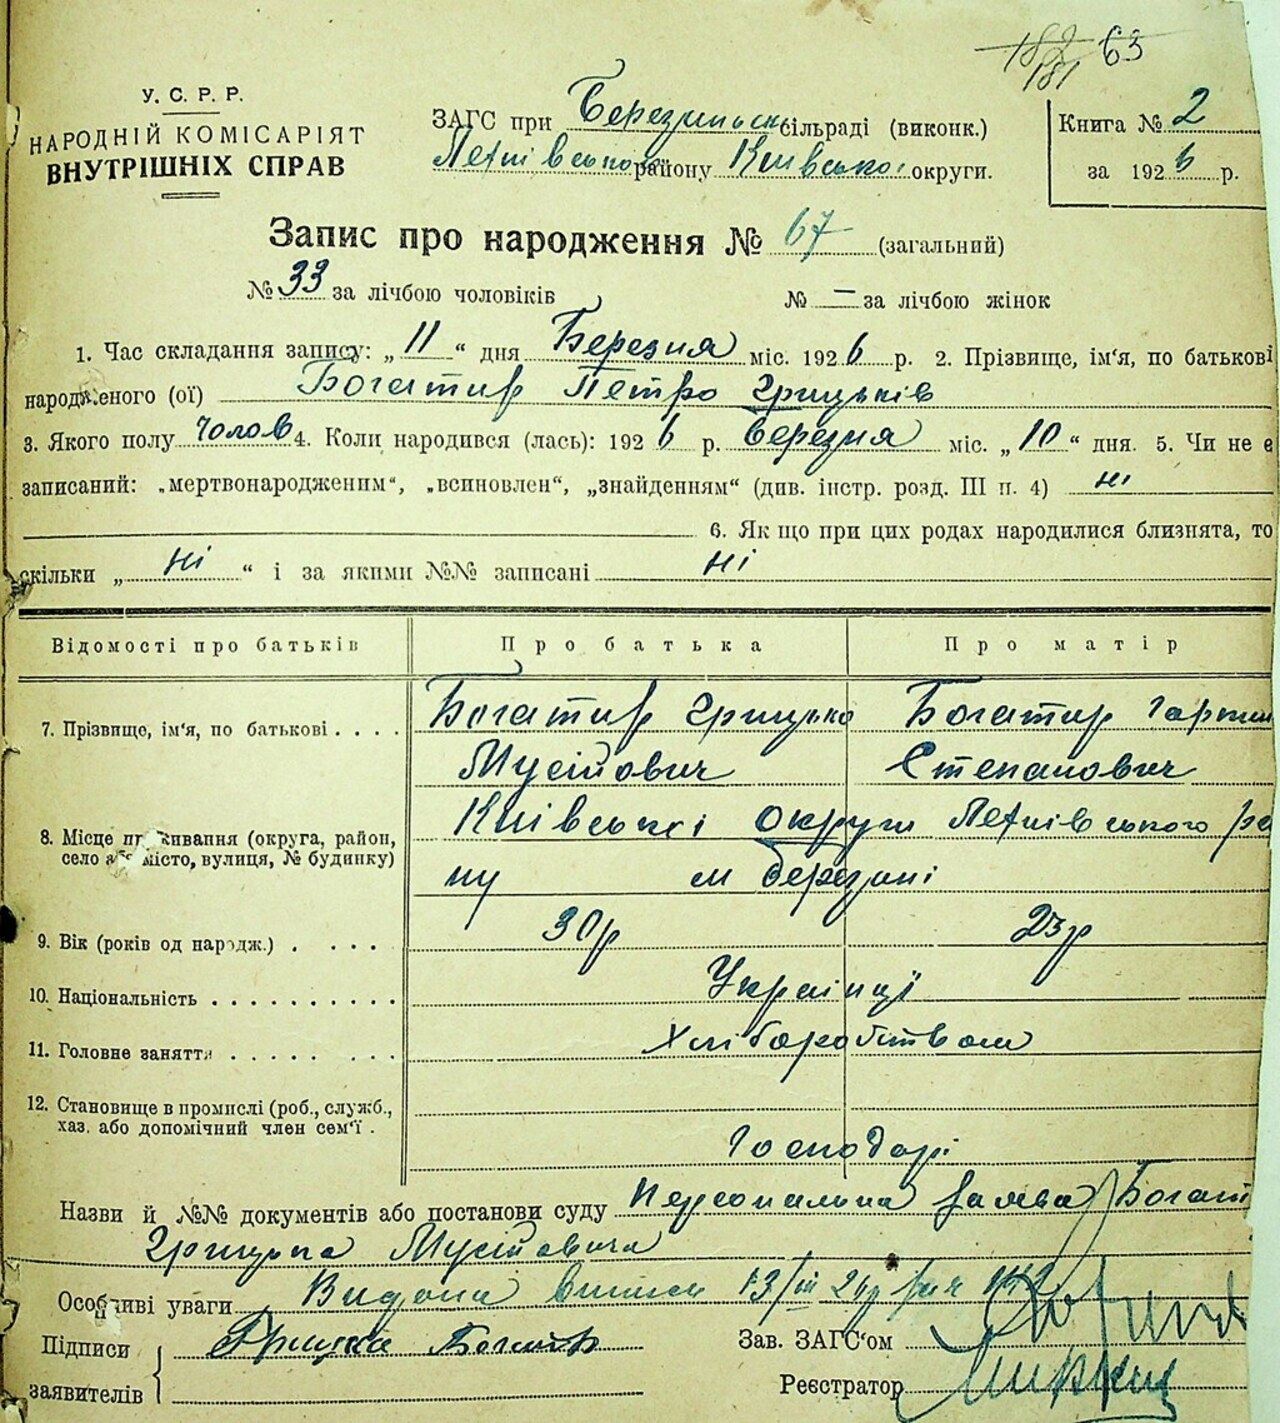 182 63
181
У. С. Р. Р.
НАРОДНІЙ КОМІСАРІЯТ
ВНУТРІШНІХ СПРАВ
ЗАГС при Березанськ сільраді (виконк.)
району Київської округи.
Книга № 2
за 1926 р.
Запис про народження № 67 (загальний)
№ 33 за лічбою чоловіків № — за лічбою жінок
1. Час складання запису: „ 11 “ дня Березня міс. 1926 р. 2. Прізвище, ім'я, по батькові
народженого (ої) Богатир Петро Грицьків
3. Якого полу Чолов 4. Коли народився (лась): 1926 р. березня міс. „ 10 “ дня. 5. Чи не є
записаний: „мертвонародженим“, „всиновлен“, „знайденням“ (див. інстр. розд. III п. 4) ні
6. Як що при цих родах народилися близнята, то
скільки „ ні “ і за якими №№ записані ні
Відомості про батьків Про батька Про матір
7. Прізвище, ім'я, по батькові . . . . Богатир Грицько Богатир
Мусійович Степанович
8. Місце проживання (округа, район, село або місто, вулиця, № будинку) Київської округи
ну м Березані
9. Вік (років од народж.) . . . . 30р 23р
10. Національність . . . . . . . . . . Українці
11. Головне заняття . . . . . . . . Хліборобством
12. Становище в промислі (роб., служб.,
хаз. або допомічний член сем'ї .
Господарі
Назви й №№ документів або постанови суду Персональна заява Богат
Грицька Мусійовича
Особливі уваги Видана виписк 13/III 26р
Підписи Грицко Богатир Зав. ЗАГС'ом
заявителів Реєстратор